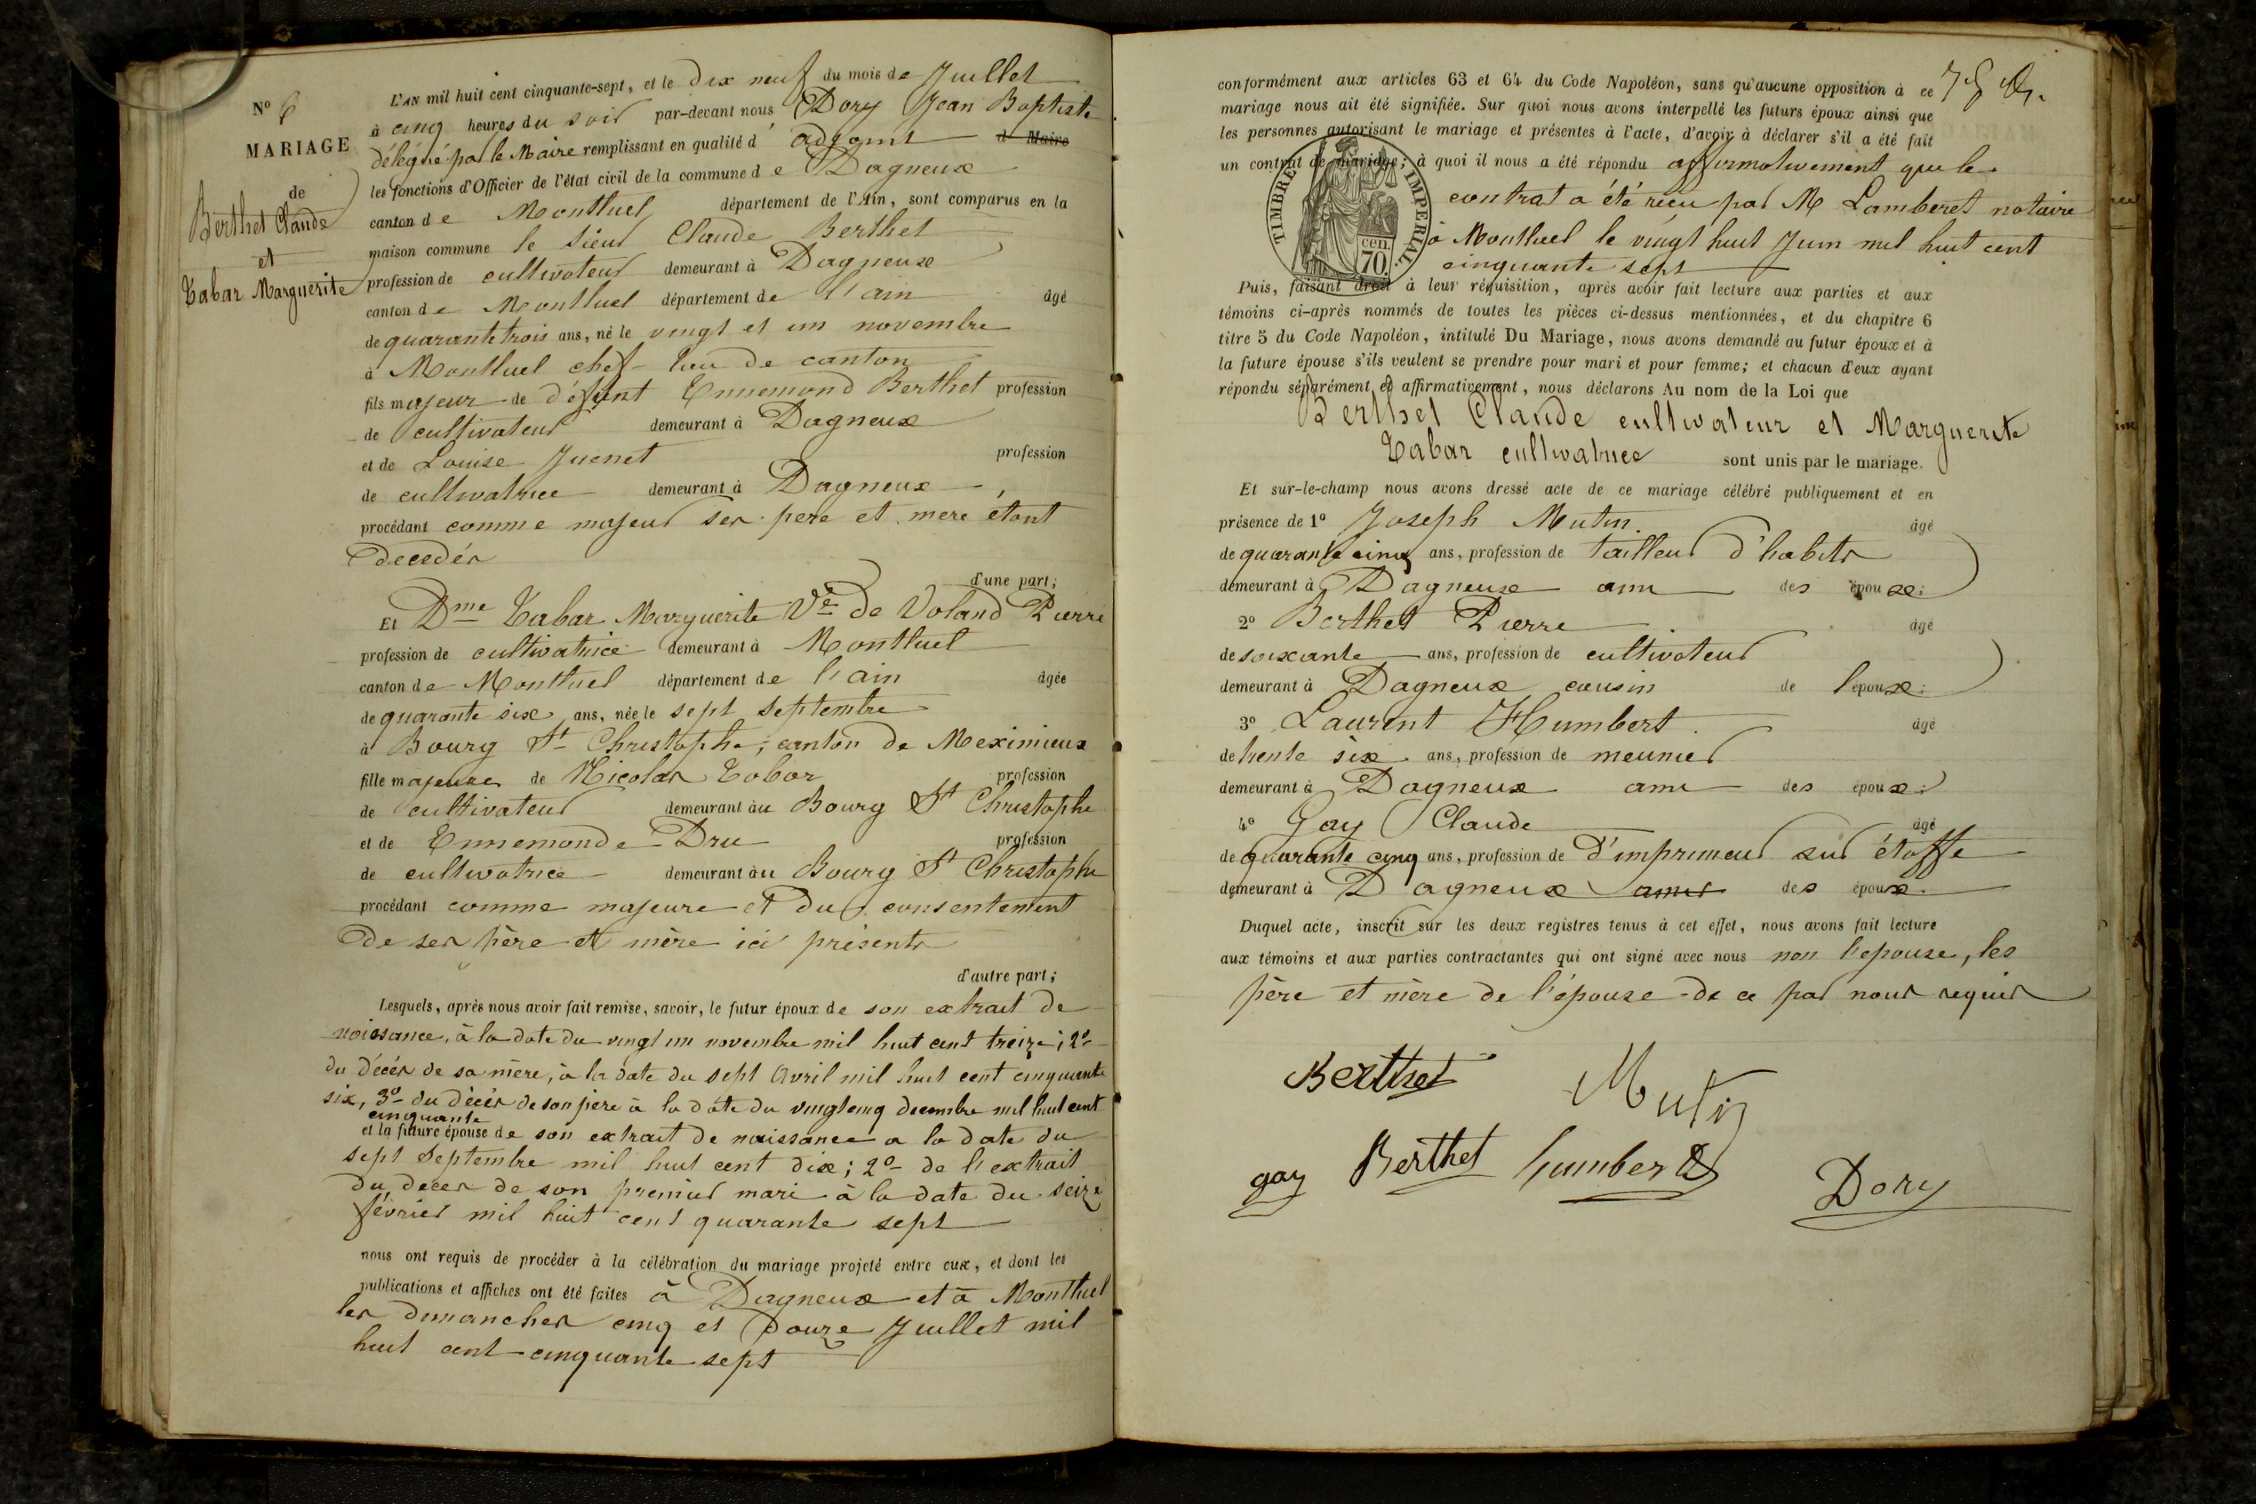 Nº 6
MARIAGE
de
Berthet Claude
et
Tabar Marguerite
L'AN mil huit cent cinquante-sept, et le dix neuf du mois de Juillet
à cinq heures du soir par-devant nous Dory Jean Baptiste
délégué par le Maire remplissant en qualité d' adjoint d Maire
les fonctions d'Officier de l'état civil de la commune de Dagneux
canton de Montluel département de l'Ain, sont comparus en la
maison commune le sieur Claude Berthet
profession de cultivateur demeurant à Dagneux
canton de Montluel département de l'ain âgé
de quarante trois ans, né le vingt et un novembre
à Montluel chef-lieu de canton
fils majeur de défunt Ennemond Berthet profession
de cultivateur demeurant à Dagneux
et de Louise Juenet profession
de cultivatrice demeurant à Dagneux
procédant comme majeur ses pere et mere étant
decedés
d'une part;
Et Dme Tabar Marguerite Ve de Voland Pierre
profession de cultivatrice demeurant à Montluel
canton de Montluel département de l'ain âgée
de quarante six ans, née le sept septembre
à Bourg St Christophe, canton de Meximieux
fille majeure de Nicolas Tabar profession
de cultivateur demeurant au Bourg St Christophe
et de Ennemonde Dru profession
de cultivatrice demeurant au Bourg St Christophe
procédant comme majeure et du consentement
de ses père et mère ici présents
d'autre part;
Lesquels, après nous avoir fait remise, savoir, le futur époux de son extrait de
naissance, à la date du vingt un novembre mil huit cent treize; 2º
du décés de sa mère, à la date du sept Avril mil huit cent cinquante
six, 3º du décés de son père à la date du vingt cinq decembre mil huit cent
cinquante
et la future épouse de son extrait de naissance a la date du
sept Septembre mil huit cent dix; 2º de l'extrait
du deces de son premier mari à la date du seize
février mil huit cent quarante sept
nous ont requis de procéder à la célébration du mariage projeté entre eux, et dont les
publications et affiches ont été faites à Dagneux et à Montluel
les dimanches cinq et douze Juillet mil
huit cent cinquante sept
conformément aux articles 63 et 64 du Code Napoléon, sans qu'aucune opposition à ce
mariage nous ait été signifiée. Sur quoi nous avons interpellé les futurs époux ainsi que
les personnes autorisant le mariage et présentes à l'acte, d'avoir à déclarer s'il a été fait
un contrat de mariage; à quoi il nous a été répondu affirmativement que le
contrat a été reçu par M Lamberet notaire
à Montluel le vingt huit Juin mil huit cent
cinquante sept
TIMBRE IMPERIAL
70 cen.
Puis, faisant droit à leur réquisition, après avoir fait lecture aux parties et aux
témoins ci-après nommés de toutes les pièces ci-dessus mentionnées, et du chapitre 6
titre 5 du Code Napoléon, intitulé Du Mariage, nous avons demandé au futur époux et à
la future épouse s'ils veulent se prendre pour mari et pour femme; et chacun d'eux ayant
répondu séparément et affirmativement, nous déclarons Au nom de la Loi que
Berthet Claude cultivateur et Marguerite
Tabar cultivatrice sont unis par le mariage.
Et sur-le-champ nous avons dressé acte de ce mariage célébré publiquement et en
présence de 1º Joseph Mutin âgé
de quarante cinq ans, profession de tailleur d'habits
demeurant à Dagneux ami des époux;
2º Berthet Pierre âgé
de soixante ans, profession de cultivateur
demeurant à Dagneux cousin de l'epoux;
3º Laurent Humbert âgé
de trente six ans, profession de meunier
demeurant à Dagneux ami des époux;
4º Gay Claude âgé
de quarante cinq ans, profession de d'imprimeur sur étoffe
demeurant à Dagneux amis des époux.
Duquel acte, inscrit sur les deux registres tenus à cet effet, nous avons fait lecture
aux témoins et aux parties contractantes qui ont signé avec nous non l'epouse, les
père et mère de l'épouse de ce par nous requis
Berthet Mutin
gay Berthet humbert Dory